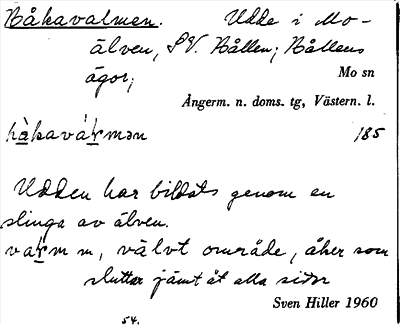 Båkavalmen. Udde i Mo-
älven, SV. Bållen; Bållens
ägor;
Mo sn
Ångerm. n. doms. tg, Västern. l.
bàkavármən 185
Udden har bildats genom en
slinga av älven.
varm m, välvt område, åker som
sluttar jämt åt alla sidor
Sven Hiller 1960
54.